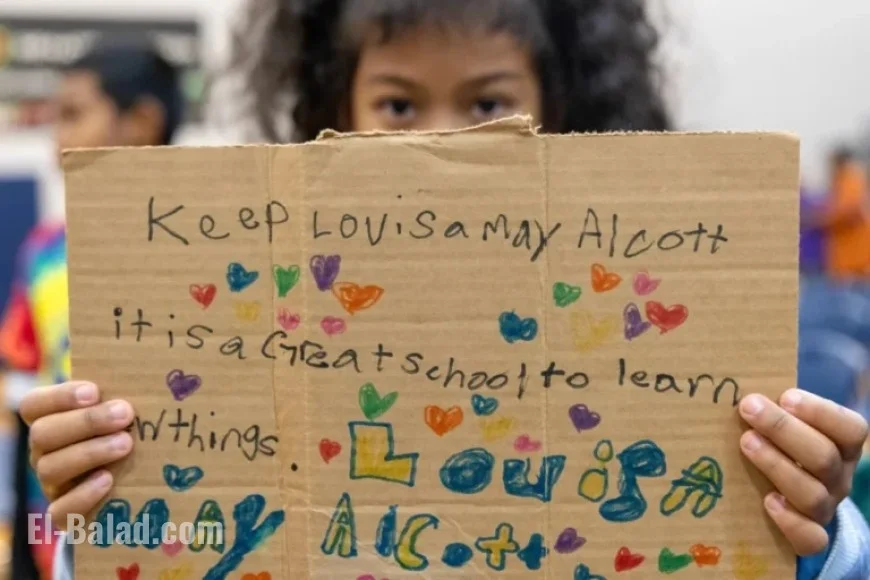 Keep Lovisa May Alcott
it is a Great school to learn
things.
Louisa
may Alcott
El-Balad.com